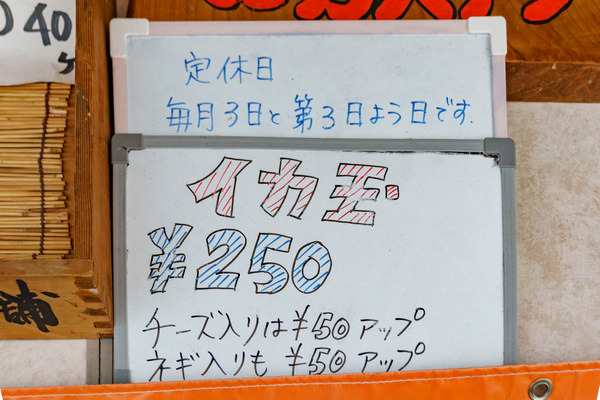 40
ケ
定休日
毎月3日と第3日よう日です.
イカ玉
¥250
チーズ入りは¥50アップ
ネギ入りも ¥50アップ
舗